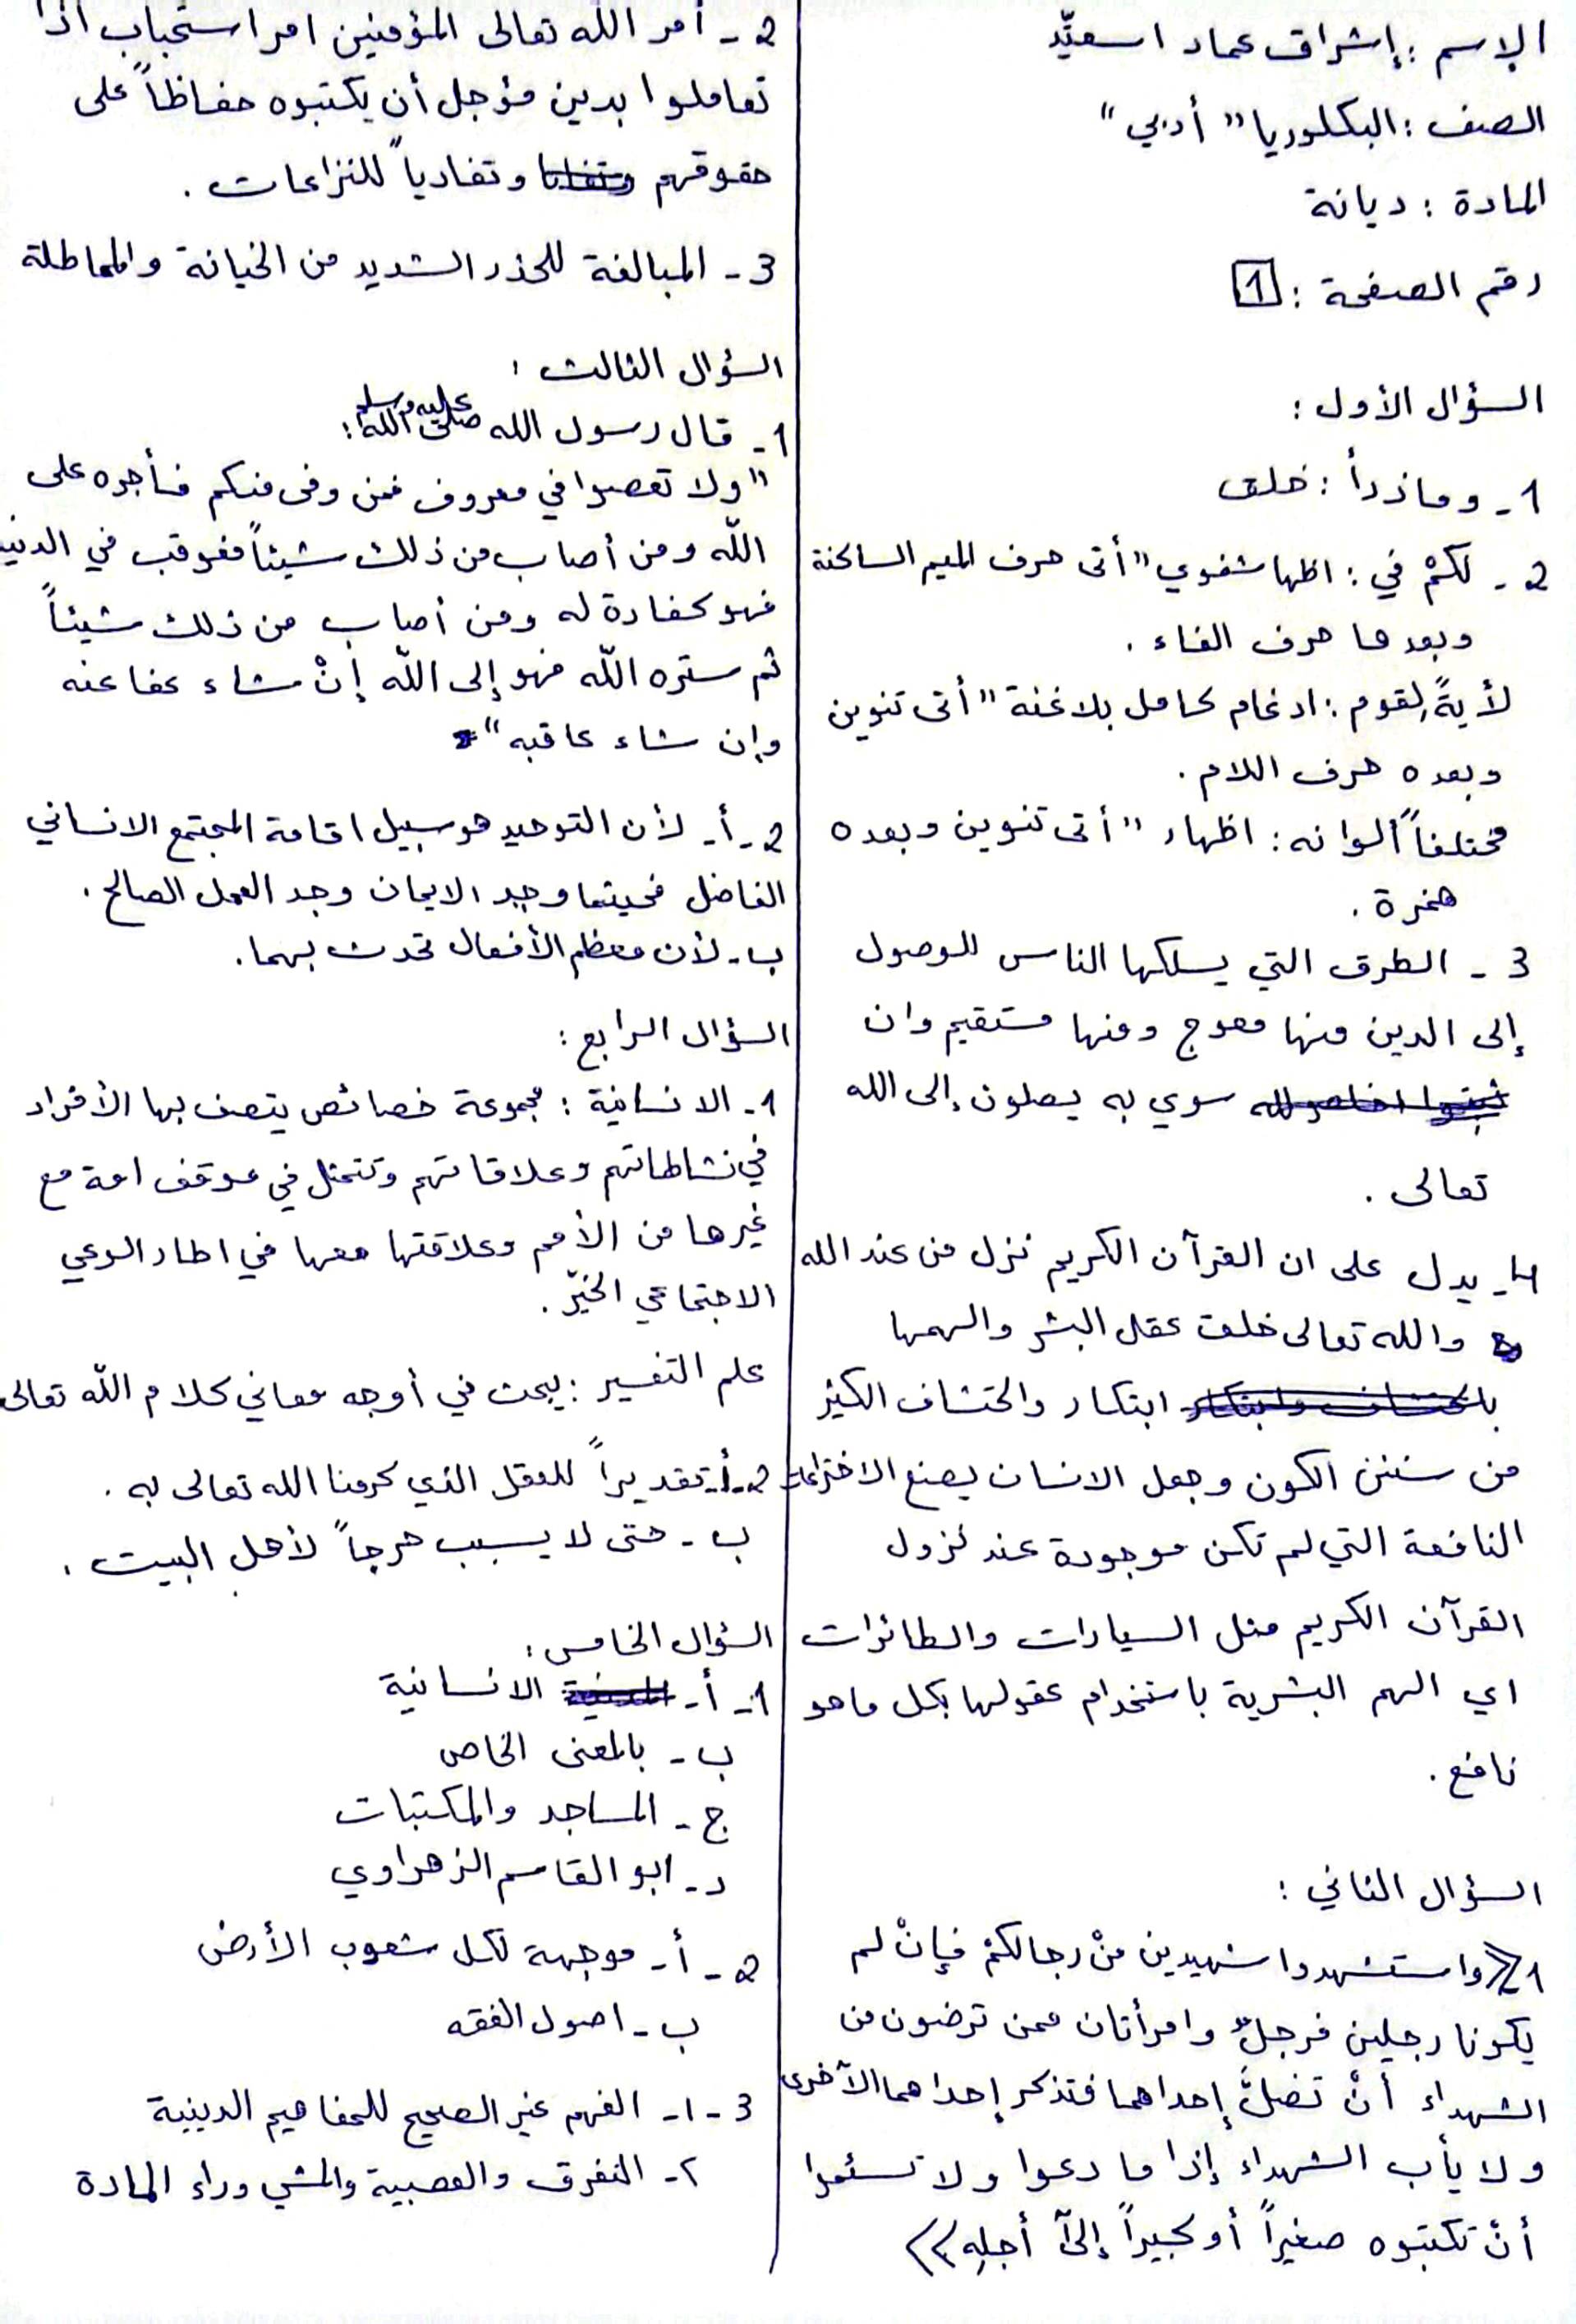 الإسم : إشراق عماد اسعيّد
الصف : البكلوريا "أدبي"
المادة : ديانة
رقم الصفحة : 1
السؤال الأول :
1- وماذرأ : خلق
2- لكمْ في : اظهار شفوي "أتى حرف الميم الساكنة
وبعدها حرف الفاء .
لأيةً لِقوم : ادغام كامل بلا غنة "أتى تنوين
وبعده حرف اللام .
مختلفاً ألوانه : اظهار "أتى تنوين وبعده
همزة .
3- الطرق التي يسلكها الناس للوصول
إلى الدين منها معوج ومنها مستقيم وان
سوي به يصلون إلى الله
تعالى .
4- يدل على ان القرآن الكريم نزل من عند الله
والله تعالى خلق عقل البشر والهمها
ابتكار واكتشاف الكثير
من سنن الكون وجعل الانسان يصنع الاختراعات
النافعة التي لم تكن موجودة عند نزول
القرآن الكريم مثل السيارات والطائرات
اي الهم البشرية باستخدام عقولها بكل ماهو
نافع .
السؤال الثاني :
1 《واستشهدوا شهيدين منْ رجالكمْ فإنْ لم
يكونا رجلين فرجلٌ وامرأتان ممن ترضون من
الشهداء أنْ تضلَّ إحداهما فتذكر إحداهما الآخرى
ولا يأب الشهداء إذا ما دعوا ولا تسئموا
أنْ تكتبوه صغيراً أو كبيراً إلىٓ أجلِه》
2- أمر الله تعالى المؤمنين امر استحباب اذا
تعاملوا بدين مؤجل أن يكتبوه حفاظاً على
حقوقهم وتفادياً للنزاعات .
3- المبالغة للحذر الشديد من الخيانة والمماطلة
السؤال الثالث :
1- قال رسول الله صلى الله عليه وسلم :
"ولا تعصوا في معروف فمن وفى منكم فأجره على
الله ومن أصاب من ذلك شيئاً فعوقب في الدنيا
فهو كفارة له ومن أصاب من ذلك شيئاً
ثم ستره الله فهو إلى الله إنْ شاء عفا عنه
وإن شاء عاقبه"
2- أ- لأن التوحيد هو سبيل اقامة المجتمع الانساني
الفاضل فحيثما وجد الايمان وجد العمل الصالح .
ب- لأن معظم الأفعال تحدث بهما .
السؤال الرابع :
1- الانسانية : مجموعة خصائص يتصف بها الأفراد
في نشاطاتهم وعلاقاتهم وتتمثل في موقف امة مع
غيرها من الأمم وعلاقتها معها في اطار الوعي
الاجتماعي الخيّر .
علم التفسير : يبحث في أوجه معاني كلام الله تعالى
2- أ- تقديراً للعقل الذي كرمنا الله تعالى به .
ب- حتى لا يسبب حرجاً لأهل البيت .
السؤال الخامس :
1- أ- الانسانية
ب- بالمعنى الخاص
ج- المساجد والمكتبات
د- ابو القاسم الزهراوي
2- أ- موجهة لكل شعوب الأرض
ب- اصول الفقه
3- 1- الفهم غير الصحيح للمفاهيم الدينية
٢- التفرق والعصبية والمشي وراء المادة